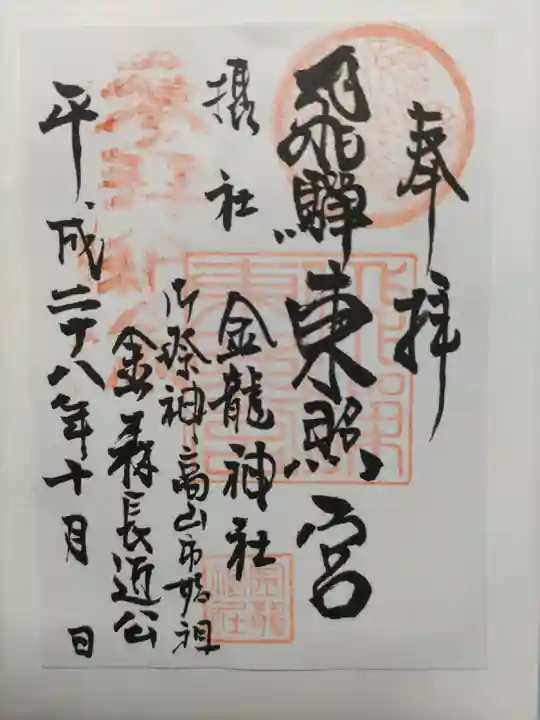 奉拝
飛騨東照宮
摂社
金龍神社
御祭神、高山市始祖
金森長近公
平成二十八年十月 日
金龍神社